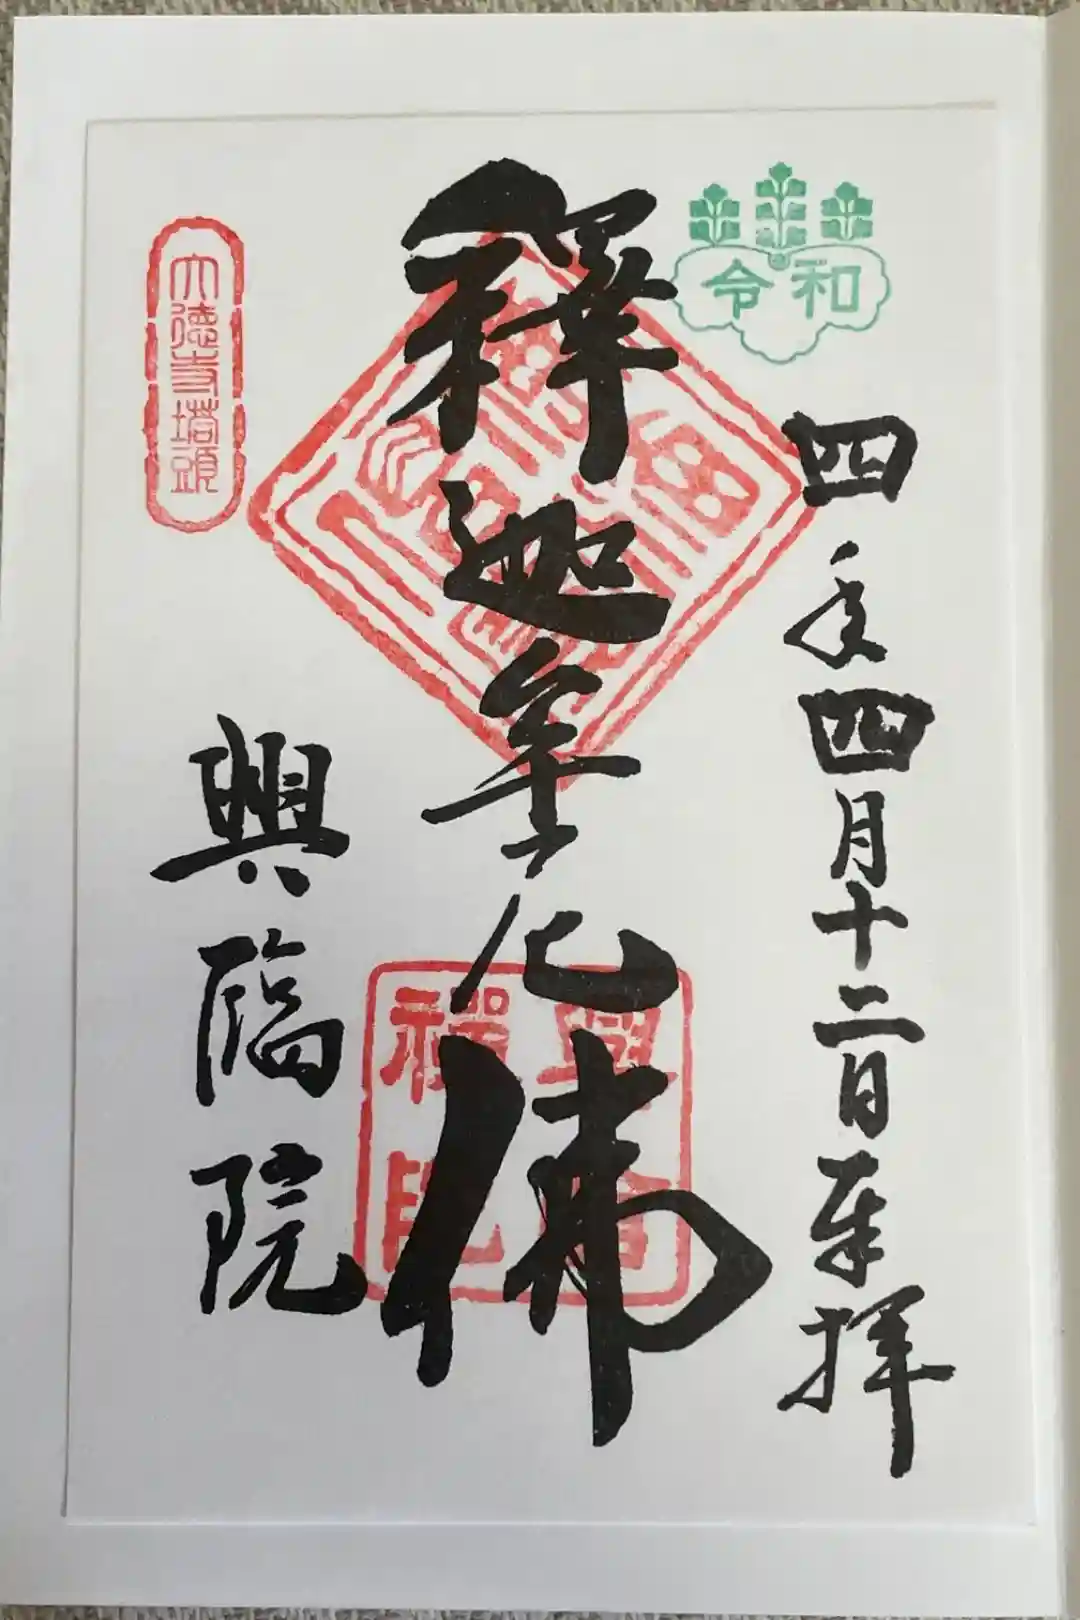 令和
四年四月十二日奉拝
釋迦牟尼佛
興臨院
大徳寺塔頭